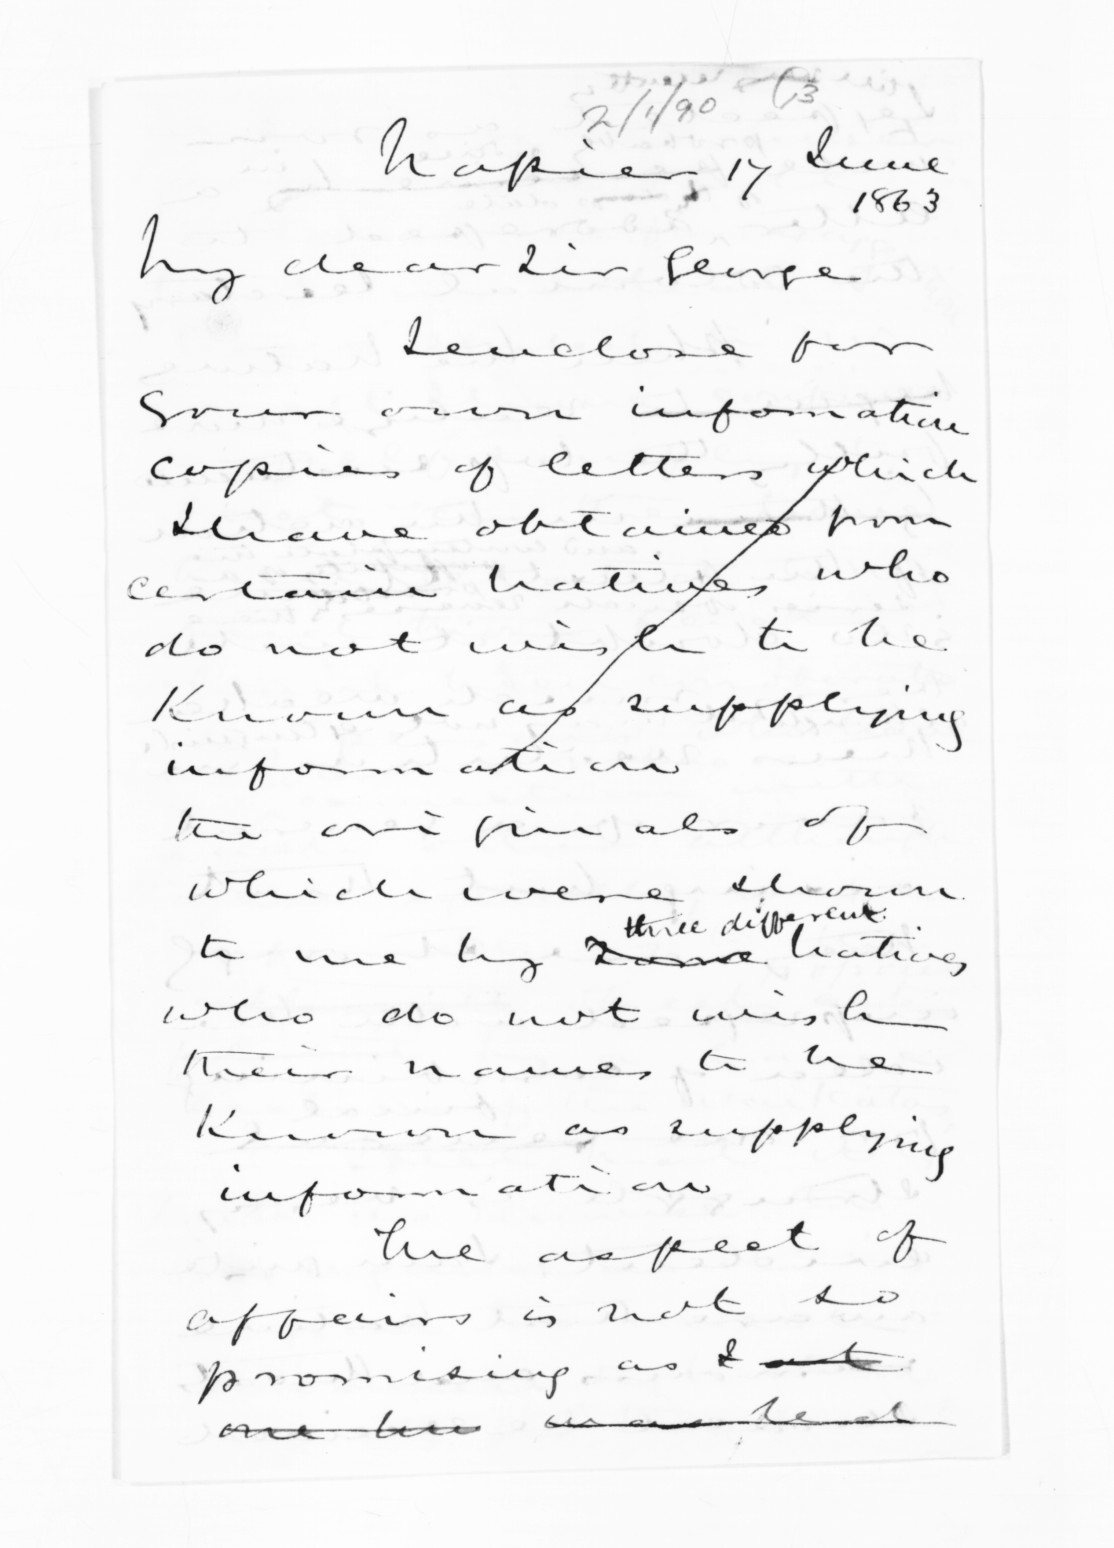 2/1/90 13
Napier 17 June
1863
My dear Sir George
I enclose for
your own infomation
copies of letters which
I have obtained from
certain Natives who
do not wish to be
Known as supplying
information
the originals of
which were shown
three different
to me by some Natives
who do not wish
their names to be
Known as supplying
information
The aspect of
affairs is not so
promising as I at
one time